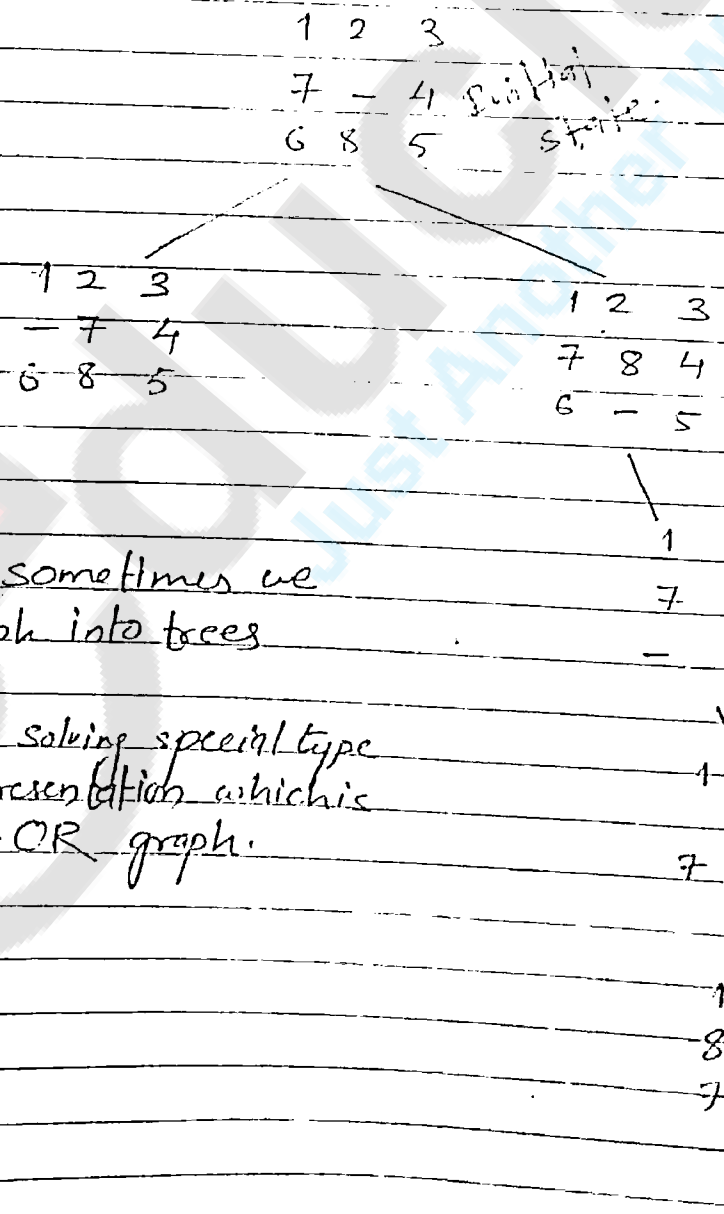 1 2 3
7 - 4 Initial
6 8 5 state.
1 2 3
- 7 4
6 8 5
1 2 3
7 8 4
6 - 5
1
7
-
sometimes we
into trees
solving speciel type
resentation which is
OR graph.
1
7
1
8
7
Just Another